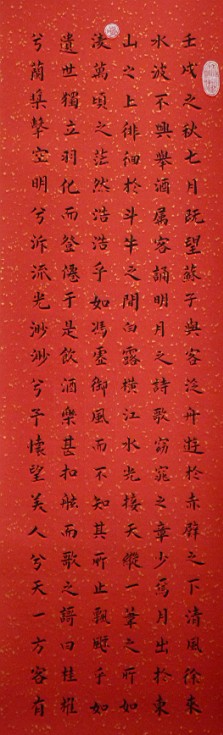 壬戌之秋七月既望蘇子與客泛舟遊於赤壁之下清風徐來
水波不興舉酒屬客誦明月之詩歌窈窕之章少焉月出於東
山之上徘徊於斗牛之間白露橫江水光接天縱一葦之所如
淩萬頃之茫然浩浩乎如馮虛御風而不知其所止飄飄乎如
遺世獨立羽化而登僊于是飲酒樂甚扣舷而歌之謌曰桂櫂
兮蘭槳擊空明兮泝流光渺渺兮予懷望美人兮天一方客有